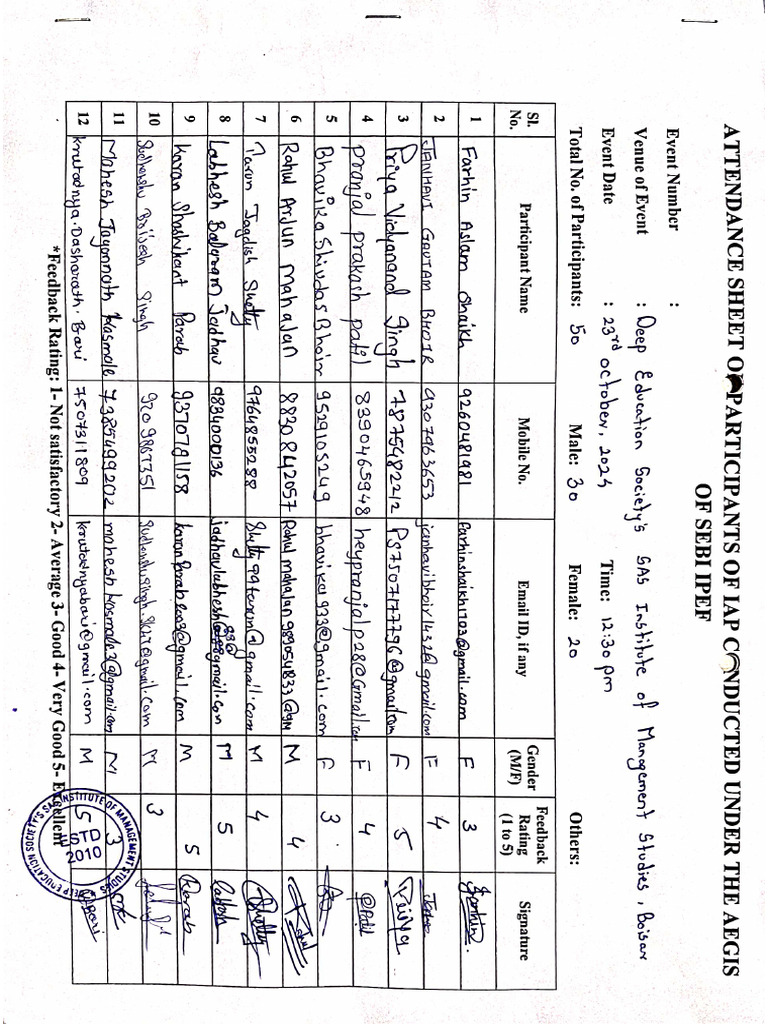 ATTENDANCE SHEET OF PARTICIPANTS OF IAP CONDUCTED UNDER THE AEGIS
OF SEBI IPEF
Event Number :
Venue of Event : Deep Education Society's SAS Institute of Management Studies, Boisar
Event Date : 23rd October, 2024 Time: 12:30 pm
Total No. of Participants: 50 Male: 30 Female: 20 Others:
Sl. No. Participant Name Mobile No. Email ID, if any Gender (M/F) Feedback Rating (1 to 5) Signature
1 Farhin Aslam Shaikh 9260481981 farhinshaikh1703@gmail.com F 3 Farhin
2 JANHAVI GAUTAM BHOIR 9307963653 janhavibhoir1432@gmail.com F 4
3 Priya Vidyanand Singh 7875482212 PS7507177796@gmail.com F 5 Priya
4 pranjal prakash patil 8390465948 heypranjalp28@Gmail.com F 4 @Patil
5 Bhavika Shivdas Bhoir 9529105249 bhavika1993@gmail.com F 3
6 Rahul Arjun Mahajan 8830842057 F Rahul mahajan989054833@gm M 4 Rahul
7 Tarun Jagdish Shetty 9764855288 Shetty99tarun@gmail.com M 4 Shetty
8 Labhesh Balaram Jadhav 9834000136 jadhavlabhesh@gmail.com M 5 Labhesh
9 Karan Shashikant Parab 9370781158 karanparab2003@gmail.com M 5 Parab
10 Sudhanshu Brijesh Singh 9209887351 M 3
11 Mahesh Jagannath Kasmale 7385499202 maheshkasmale3@gmail.com M 3
12 Krutadnya. Dasharath. Bari 7507311809 krutadnyabari@gmail.com M 5 Bari
*Feedback Rating: 1- Not satisfactory 2- Average 3- Good 4- Very Good 5- Excellent
DEEP EDUCATION SOCIETY'S SAS INSTITUTE OF MANAGEMENT STUDIES
STD
2010